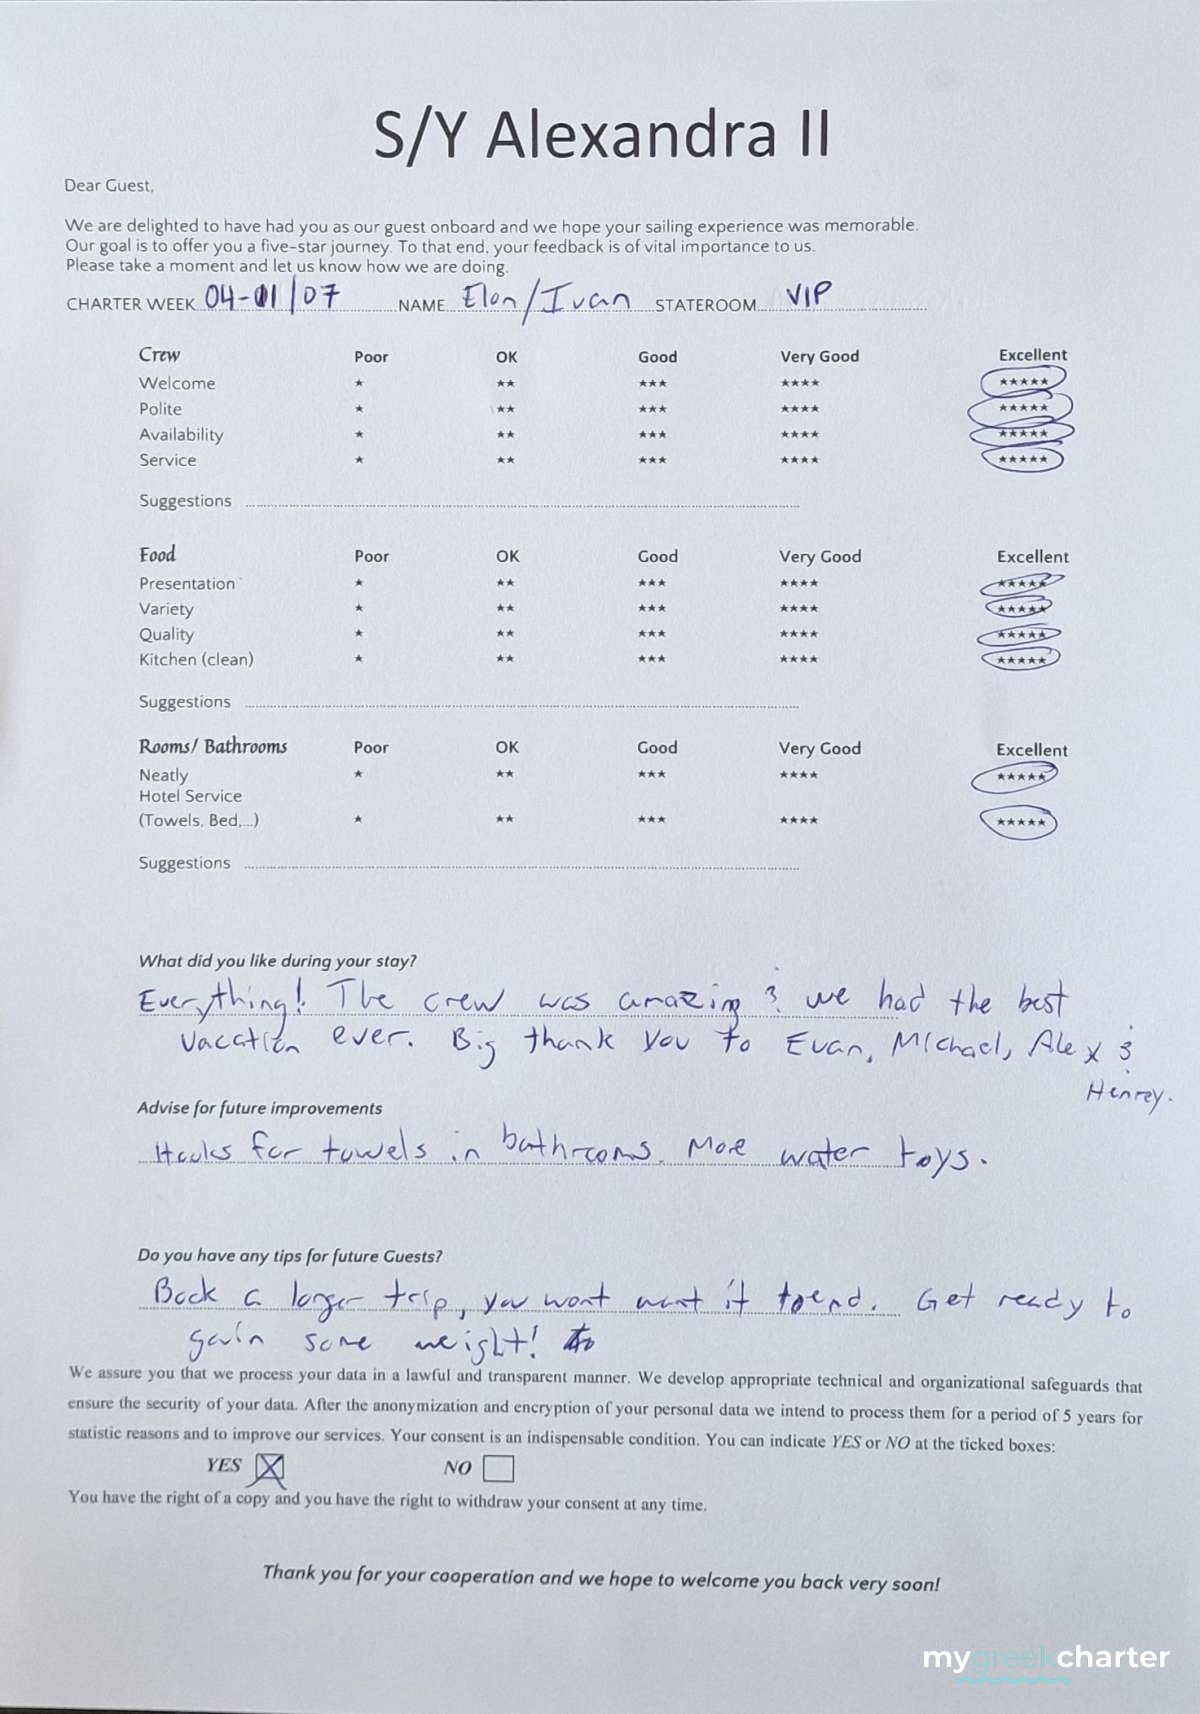 S/Y Alexandra II
Dear Guest,
We are delighted to have had you as our guest onboard and we hope your sailing experience was memorable.
Our goal is to offer you a five-star journey. To that end, your feedback is of vital importance to us.
Please take a moment and let us know how we are doing.
CHARTER WEEK 04-01/07 NAME Elon/Ivan STATEROOM VIP
Crew Poor OK Good Very Good Excellent
Welcome ★ ★★ ★★★ ★★★★ ★★★★★
Polite ★ ★★ ★★★ ★★★★ ★★★★★
Availability ★ ★★ ★★★ ★★★★ ★★★★★
Service ★ ★★ ★★★ ★★★★ ★★★★★
Suggestions
Food Poor OK Good Very Good Excellent
Presentation ★ ★★ ★★★ ★★★★ ★★★★★
Variety ★ ★★ ★★★ ★★★★ ★★★★★
Quality ★ ★★ ★★★ ★★★★ ★★★★★
Kitchen (clean) ★ ★★ ★★★ ★★★★ ★★★★★
Suggestions
Rooms/ Bathrooms Poor OK Good Very Good Excellent
Neatly ★ ★★ ★★★ ★★★★ ★★★★★
Hotel Service
(Towels, Bed,...) ★ ★★ ★★★ ★★★★ ★★★★★
Suggestions
What did you like during your stay?
Everything! The crew was amazing & we had the best
vacation ever. Big thank you to Evan, Michael, Alex &
Henrey.
Advise for future improvements
Hooks for towels in bathrooms. More water toys.
Do you have any tips for future Guests?
Book a longer trip, you wont want it to end. Get ready to
gain some weight!
We assure you that we process your data in a lawful and transparent manner. We develop appropriate technical and organizational safeguards that
ensure the security of your data. After the anonymization and encryption of your personal data we intend to process them for a period of 5 years for
statistic reasons and to improve our services. Your consent is an indispensable condition. You can indicate YES or NO at the ticked boxes:
YES NO
You have the right of a copy and you have the right to withdraw your consent at any time.
Thank you for your cooperation and we hope to welcome you back very soon!
mygreekcharter